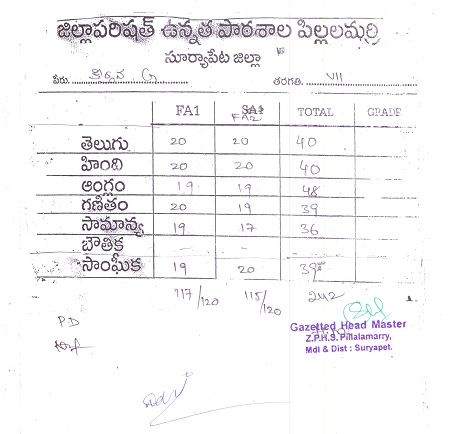 జిల్లాపరిషత్ ఉన్నత పాఠశాల పిల్లలమర్రి
సూర్యాపేట జిల్లా
పేరు. G తరగతి. VII
FA1 SA1 FA2 TOTAL GRADE
తెలుగు 20 20 40
హింది 20 20 40
ఆంగ్లం 19 19 48
గణితం 20 19 39
సామాన్య 19 17 36
భౌతిక - -
సాంఘీక 19 20 39
117/120 115/120 242
PD
Gazetted Head Master
Z.P.H.S. Pillalamarry,
Mdl & Dist : Suryapet.